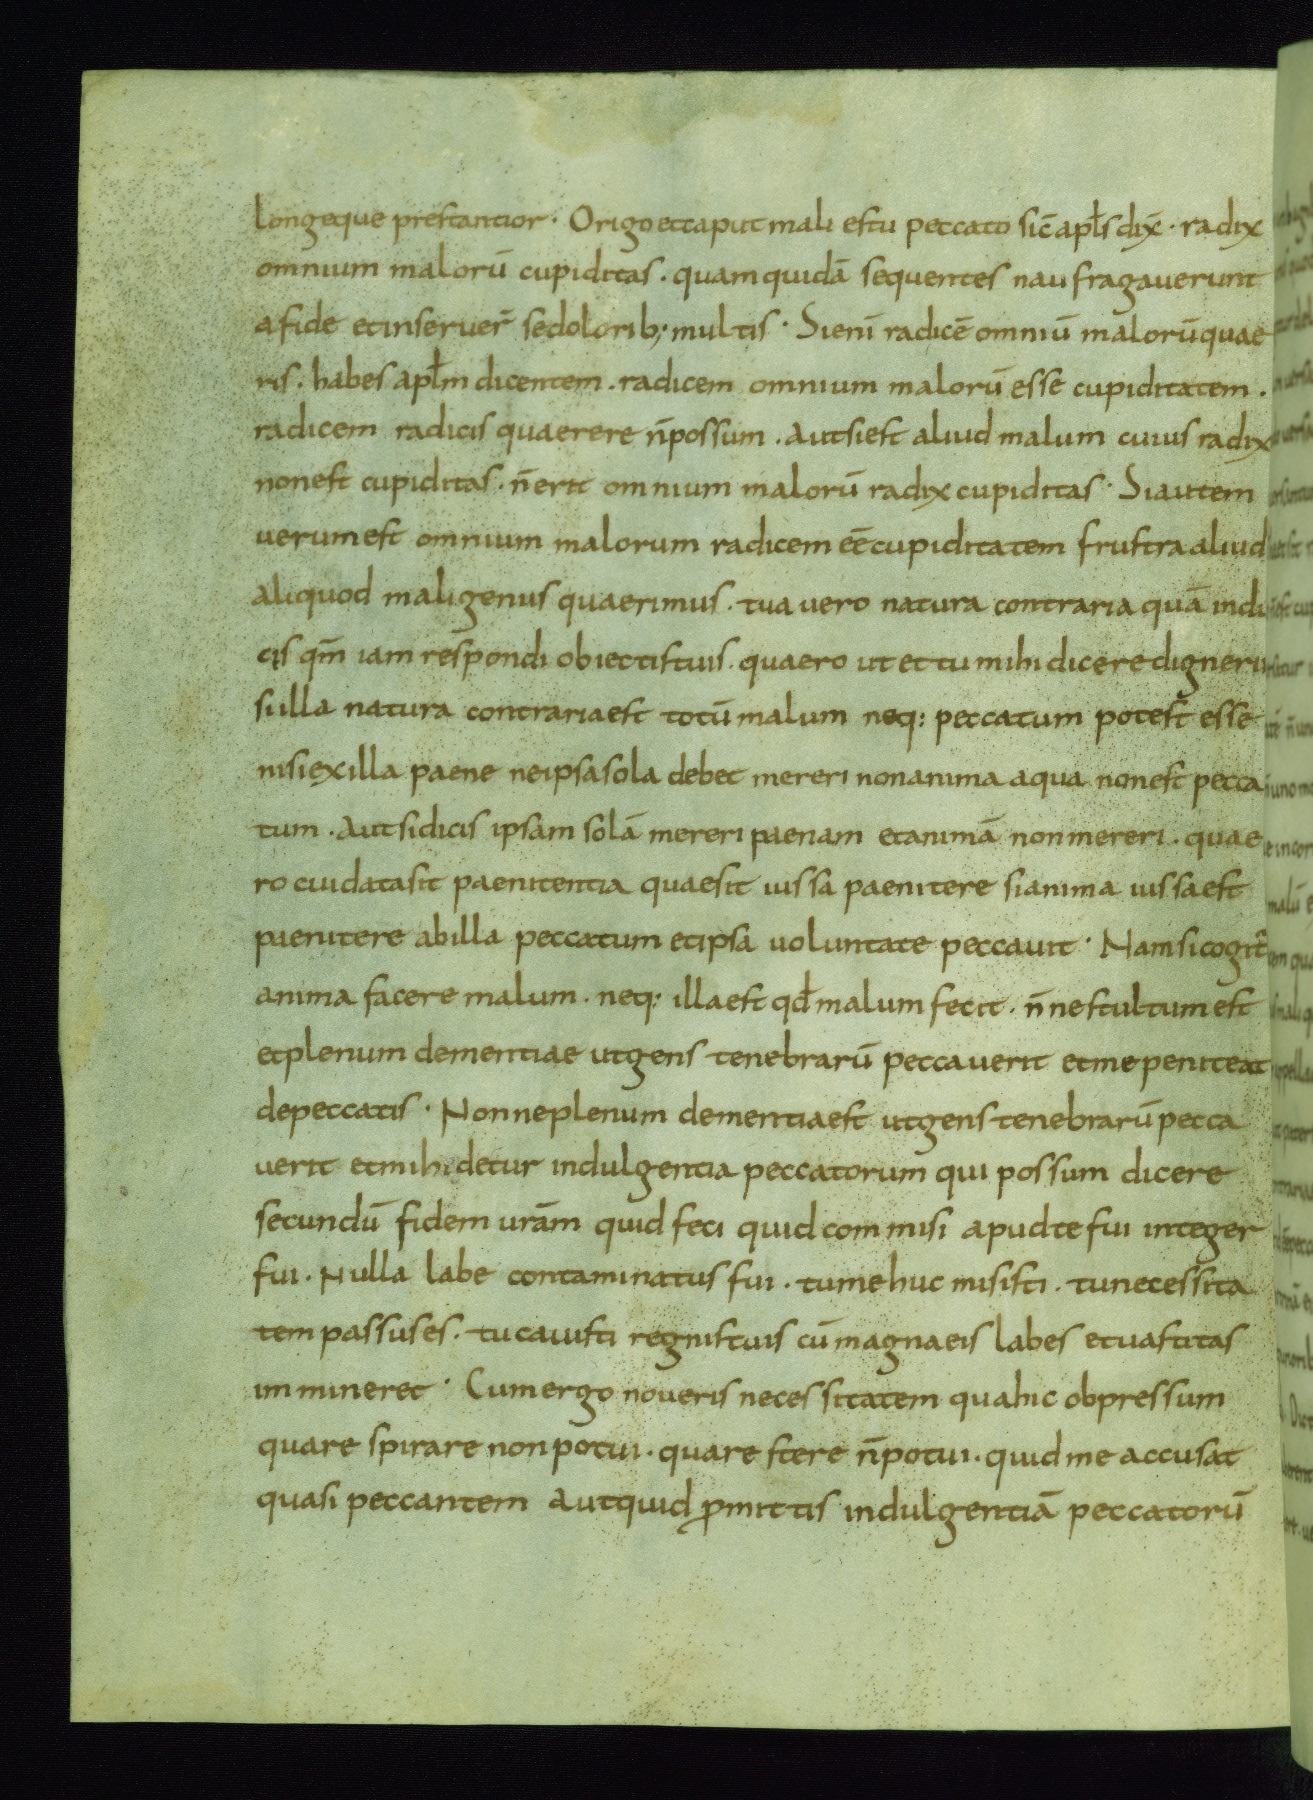 longeque prestantior · Origo et caput mali est u peccato sic̄ apl̄s dix̄ · radix
omnium malorū cupiditas · quam quidā sequentes naufragaverunt
a fide et inseruer̄ se dolorib; multis · Si eni̅ radicē omniū malorū quae
ris · habes apl̄m dicentem · radicem omnium malorū esse cupiditatem ·
radicem radicis quaerere n̄ possum · Aut si est aliud malum cuius radix
non est cupiditas · n̄ erit omnium malorū radix cupiditas · Si autem
uerum est omnium malorum radicem eē cupiditatem frustra aliud
aliquod mali genus quaerimus · tua uero natura contraria quā indi
cis qm̄ iam respondi obiectis tuis · quaero ut et tu mihi dicere digneri
si illa natura contraria est totū malum neq: peccatum potest esse
nisi ex illa paene ne ipsa sola debet mereri non anima a qua non est pecca
tum · Aut si dicis ipsam solā mereri paenam et animā non mereri · quae
ro cui data sit paenitentia quae sit iussa paenitere si anima iussa est
paenitere ab illa peccatum et ipsa uoluntate peccauit · Nam si cogit̄
anima facere malum · neq: illa est qd̄ malum fecit · n̄ne stultum est
et plenum dementiae ut gens tenebrarū peccauerit et me peniteat
de peccatis · Nonne plenum dementia est ut gens tenebrarū pecca
uerit et mihi detur indulgentia peccatorum qui possum dicere
secundū fidem urām quid feci quid commisi apud te fui integer
fui · Nulla labe contaminatus fui · tu me huc misisti · tu necessita
tem passus es · tu cauisti regnis tuis cū magna eis labes et uastitas
immineret · Cum ergo noueris necessitatem qua hic obpressum
qua respirare non potui · qua restere n̄ potui · quid me accusat
quasi peccantem aut quid p̄mittis indulgentiā peccatorū